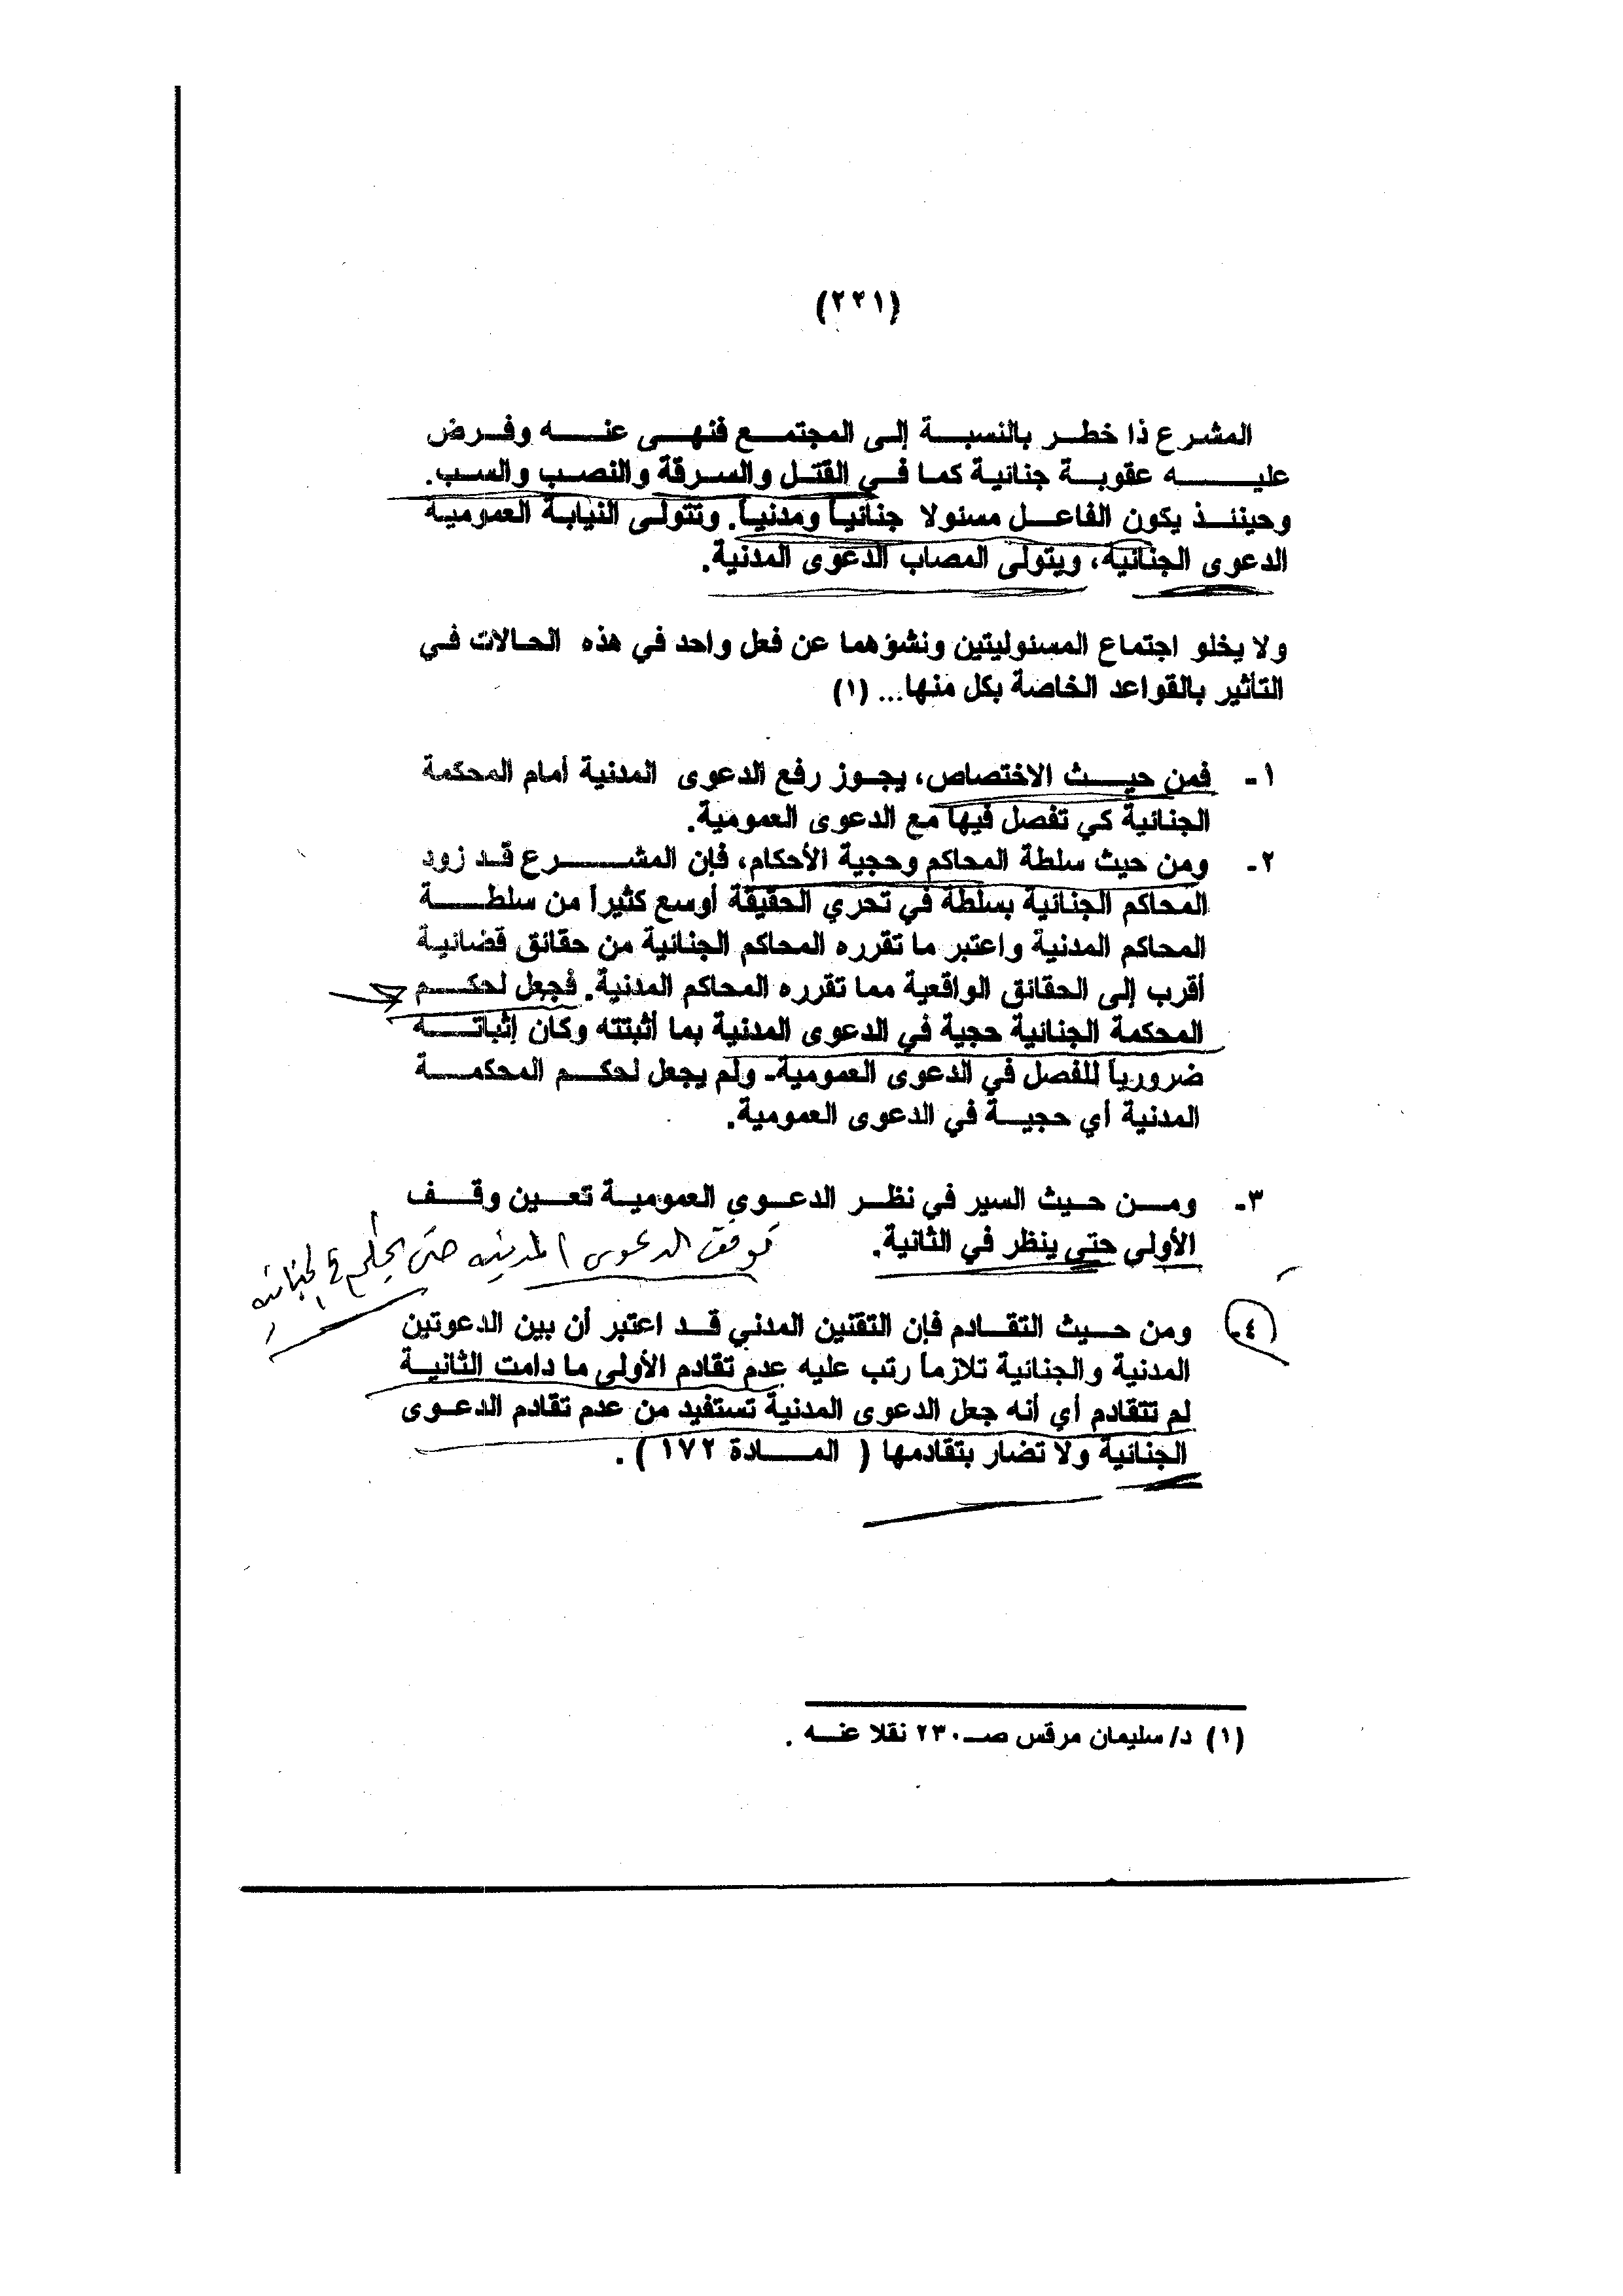 (٢٢١)
المشرع ذا خطر بالنسبة إلى المجتمع فنهى عنه وفرض
عليه عقوبة جنائية كما في القتل والسرقة والنصب والسب.
وحينئذ يكون الفاعل مسئولا جنائياً ومدنياً. وتتولى النيابة العمومية
الدعوى الجنائية، ويتولى المصاب الدعوى المدنية.
ولا يخلو اجتماع المسئوليتين ونشؤهما عن فعل واحد في هذه الحالات في
التأثير بالقواعد الخاصة بكل منها... (١)
١- فمن حيث الاختصاص، يجوز رفع الدعوى المدنية أمام المحكمة
الجنائية كي تفصل فيها مع الدعوى العمومية.
٢- ومن حيث سلطة المحاكم وحجية الأحكام، فإن المشرع قد زود
المحاكم الجنائية بسلطة في تحري الحقيقة أوسع كثيراً من سلطة
المحاكم المدنية واعتبر ما تقرره المحاكم الجنائية من حقائق قضائية
أقرب إلى الحقائق الواقعية مما تقرره المحاكم المدنية. فجعل لحكم
المحكمة الجنائية حجية في الدعوى المدنية بما أثبتته وكان إثباته
ضرورياً للفصل في الدعوى العمومية- ولم يجعل لحكم المحكمة
المدنية أي حجية في الدعوى العمومية.
٣- ومن حيث السير في نظر الدعوى العمومية تعين وقف
الأولى حتى ينظر في الثانية.
توقف الدعوى المدنيه حتى يحكم في الجنائيه
٤- ومن حيث التقادم فإن التقنين المدني قد اعتبر أن بين الدعوتين
المدنية والجنائية تلازماً رتب عليه عدم تقادم الأولى ما دامت الثانية
لم تتقادم أي أنه جعل الدعوى المدنية تستفيد من عدم تقادم الدعوى
الجنائية ولا تضار بتقادمها ( المادة ١٧٢ ) .
(١) د/ سليمان مرقس صـ ٢٣٠ نقلا عنه .